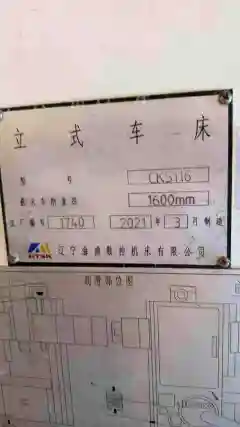 立式车床
型号 CK5116
最大车削直径 1600mm
出厂编号 1740 2021年3月制造
HTSK 辽宁海通数控机床有限公司
润滑部位图